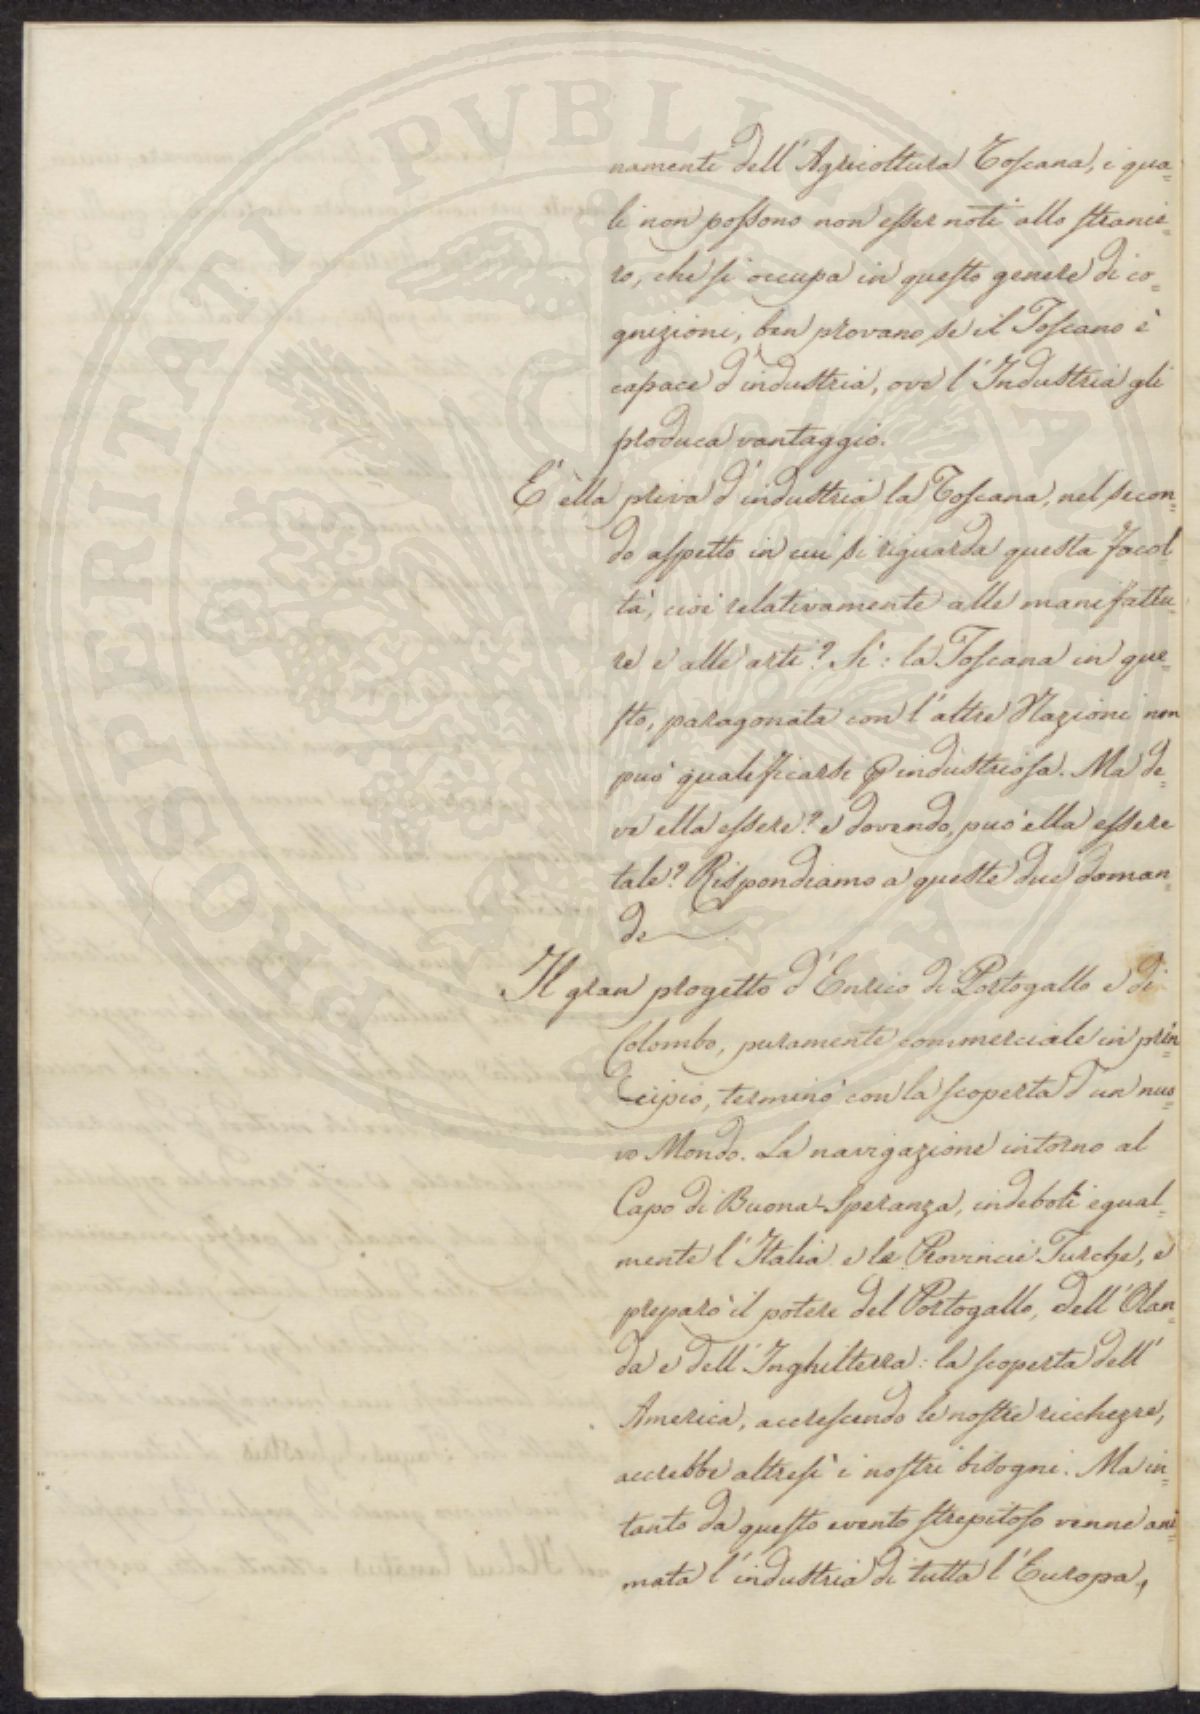 PROSPERITATI PUBLICAE AUGENDAE
namenti dell'Agricoltura Toscana, i qua=
li non possono non esser noti allo stranie=
ro, che si occupa in questo genere di co=
gnizioni, ben provano se il Toscano è
capace d'industria, ove l'Industria gli
produca vantaggio.
E' ella priva d'industria la Toscana, nel secon=
do aspetto in cui si riguarda questa facol=
tà, cioè relativamente alle manifattu=
re e alle arti? Sì: la Toscana in que=
sto, paragonata con l'altre Nazioni non
può qualificarsi industriosa. Ma de=
ve ella essere? e dovendo, può ella essere
tale? Rispondiamo a queste due doman=
de
Il gran progetto d'Enrico di Portogallo e di
Colombo, puramente commerciale in prin=
cipio, terminò con la scoperta d'un nuo=
vo Mondo. La navigazione intorno al
Capo di Buona-Speranza, indebolì egual=
mente l'Italia e le Provincie Turche, e
preparò il potere del Portogallo, dell'Olan=
da e dell'Inghilterra: la scoperta dell'
America, accrescendo le nostre ricchezze,
accrebbe altresì i nostri bisogni. Ma in=
tanto da questo evento strepitoso venne ani=
mata l'industria di tutta l'Europa,